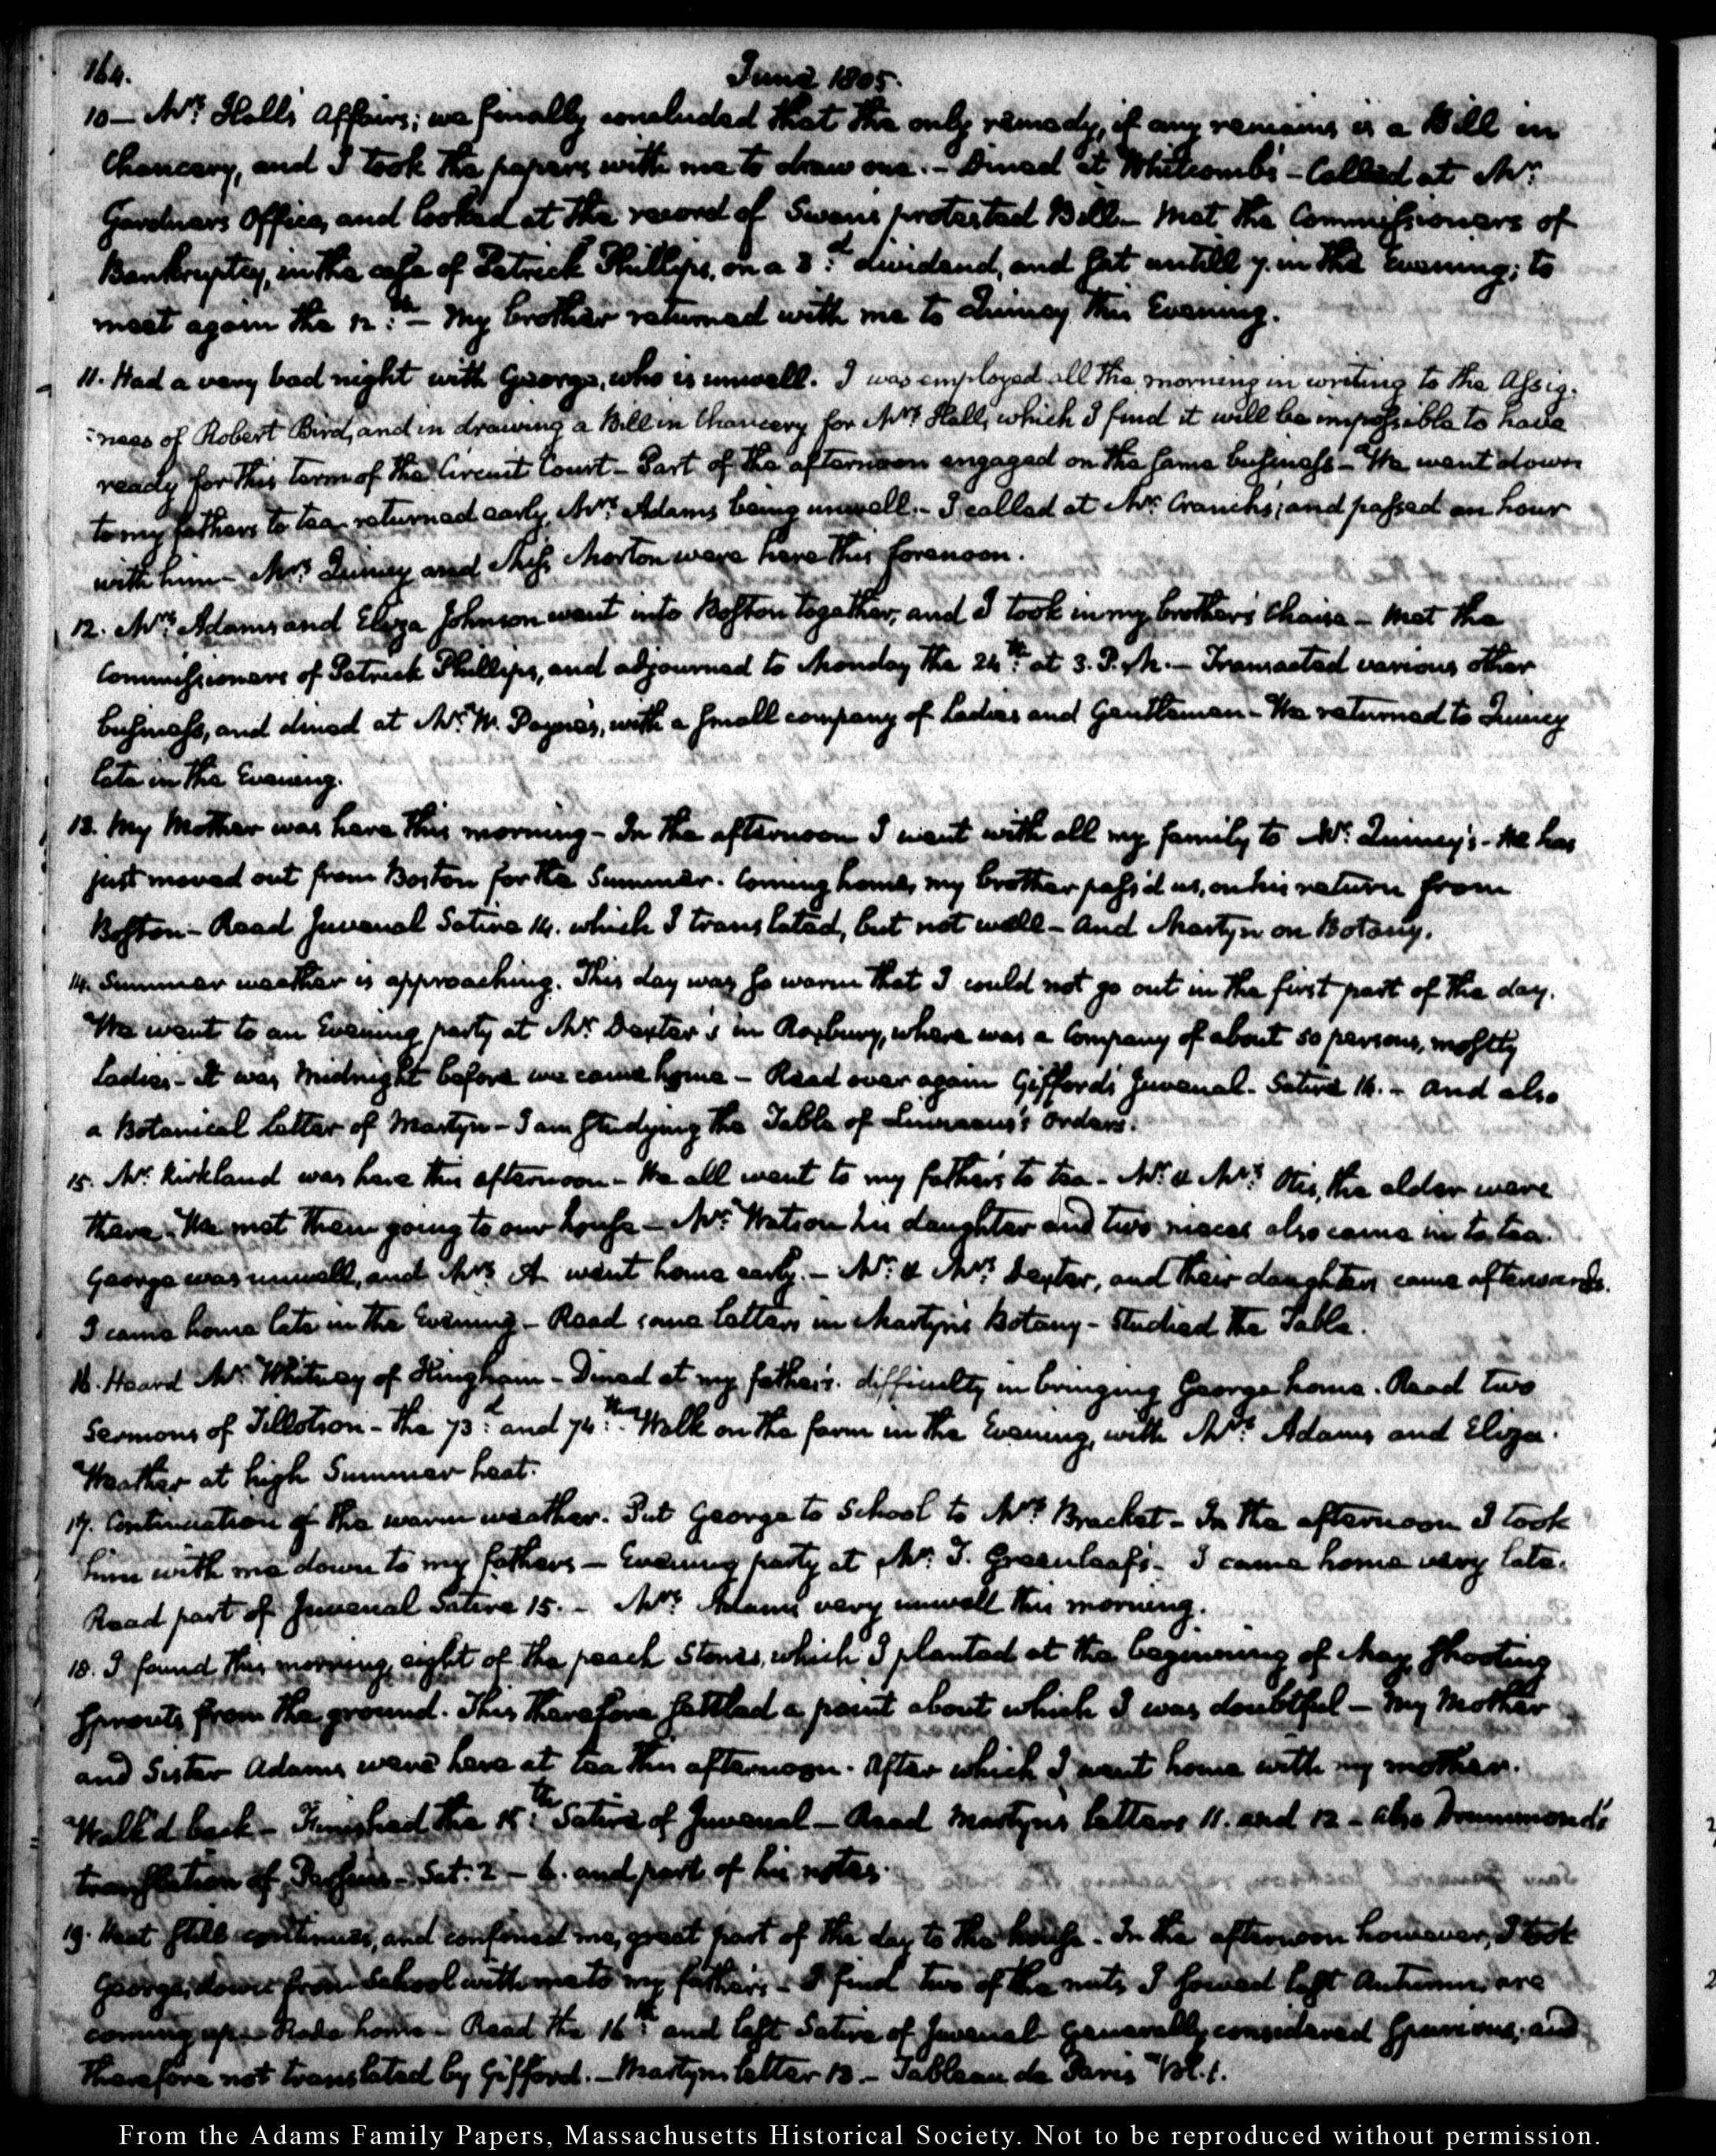 164.
June 1805.
10 — Mrs: Hall's affairs; we finally concluded that the only remedy, if any remains is a Bill in
Chancery, and I took the papers with me to draw one. – Dined at Whitcomb's – Called at Mr:
Gardner's Office, and looked at the record of Swan's protested Bill – Met the Commissioners of
Bankruptcy, in the case of Patrick Phillips, on a 3:d dividend, and sat untill 7. in the Evening; to
meet again the 12:th – My brother returned with me to Quincy this Evening.
11. Had a very bad night with George, who is unwell. I was employed all the morning in writing to the Assig-
:nees of Robert Bird, and in drawing a Bill in Chancery for Mrs: Hall, which I find it will be impossible to have
ready for this term of the Circuit Court – Part of the afternoon engaged on the same business – We went down
to my father's to tea – returned early, Mrs: Adams being unwell. – I called at Mr: Cranch's; and passed an hour
with him – Mrs: Quincy and Miss Morton were here this forenoon.
12. Mrs: Adams and Eliza Johnson went into Boston together, and I took in my brother's Chaise – Met the
Commissioners of Patrick Phillips, and adjourned to Monday the 24:th at 3. P.M. – Transacted various other
business, and dined at Mr: W. Payne's, with a small company of Ladies and Gentlemen – We returned to Quincy
late in the Evening.
13. My Mother was here this morning – In the afternoon I went with all my family to Mr: Quincy's – He has
just moved out from Boston for the Summer. Coming home, my brother pass'd us, on his return from
Boston – Read Juvenal Satire 14. which I translated, but not well – and Martyn on Botany.
14. Summer weather is approaching. This day was so warm that I could not go out in the first part of the day.
We went to an Evening party at Mr: Dexter's in Roxbury, where was a Company of about 50 persons, mostly
Ladies – It was Midnight before we came home – Read over again Gifford's Juvenal – Satire 14. – and also
a Botanical letter of Martyn – I am studying the Table of Linnaeus's orders.
15. Mr: Kirkland was here this afternoon – We all went to my father's to tea – Mr: & Mrs: Otis, the elder were
there – We met them going to our house – Mrs: Watson her daughter and two nieces also came in to tea.
George was unwell, and Mrs: A. went home early. – Mr: & Mrs: Dexter, and their daughter came afterwards.
I came home late in the Evening – Read some letters in Martyn's Botany – Studied the Table.
16. Heard Mr: Whitney of Hingham – Dined at my father's. difficulty in bringing George home. Read two
Sermons of Tillotson – the 73:d and 74:th Walk on the farm in the Evening, with Mrs: Adams and Eliza.
Weather at high Summer heat.
17. Continuation of the warm weather. Put George to School to Mrs: Bracket – In the afternoon I took
him with me down to my father's – Evening party at Mr: T. Greenleaf's – I came home very late.
Read part of Juvenal Satire 15. – Mrs: Adams very unwell this morning.
18. I found this morning, eight of the peach Stones, which I planted at the beginning of May, shooting
sprouts from the ground. This therefore settled a point about which I was doubtful – My Mother
and Sister Adams were here at tea this afternoon. After which I went home with my mother.
Walk'd back – Finished the 15:th Satire of Juvenal – Read Martyn's letters 11. and 12 – also Drummond's
translation of Persius – Sat: 2 – 6. and part of his notes.
19. Heat still continues, and confined me, great part of the day to the house. In the afternoon however, I took
George, down from School with me to my father's – I find two of the nuts I sowed last Autumn, are
coming up – Rode home – Read the 16:th and last Satire of Juvenal generally considered spurious, and
therefore not translated by Gifford. – Martyn letter 13. – Tableau de Paris Vol. 1.
From the Adams Family Papers, Massachusetts Historical Society. Not to be reproduced without permission.